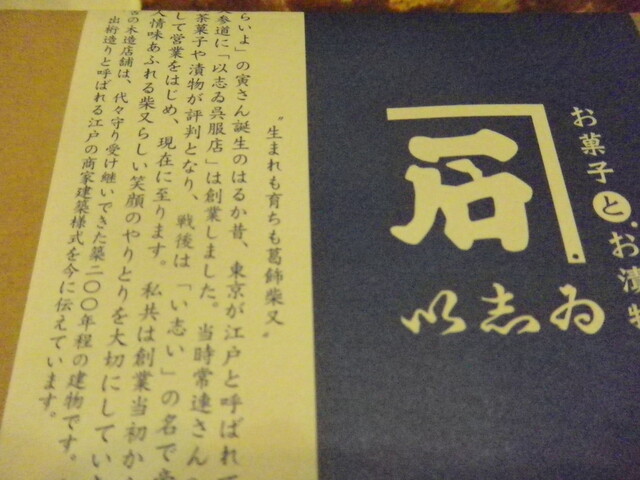 お菓子と・お漬物
石
以志ゐ
"生まれも育ちも葛飾柴又"
らいよ」の寅さん誕生のはるか昔、東京が江戸と呼ばれて
参道に「以志ゐ呉服店」は創業しました。当時常連さん
茶菓子や漬物が評判となり、戦後は「い志い」の名で
して営業をはじめ、現在に至ります。私共は創業当初か
人情味あふれる柴又らしい笑顔のやりとりを大切にしてい
の木造店舗は、代々守り受け継いできた築二〇〇年程の建物です。
出桁造りと呼ばれる江戸の商家建築様式を今に伝えています。